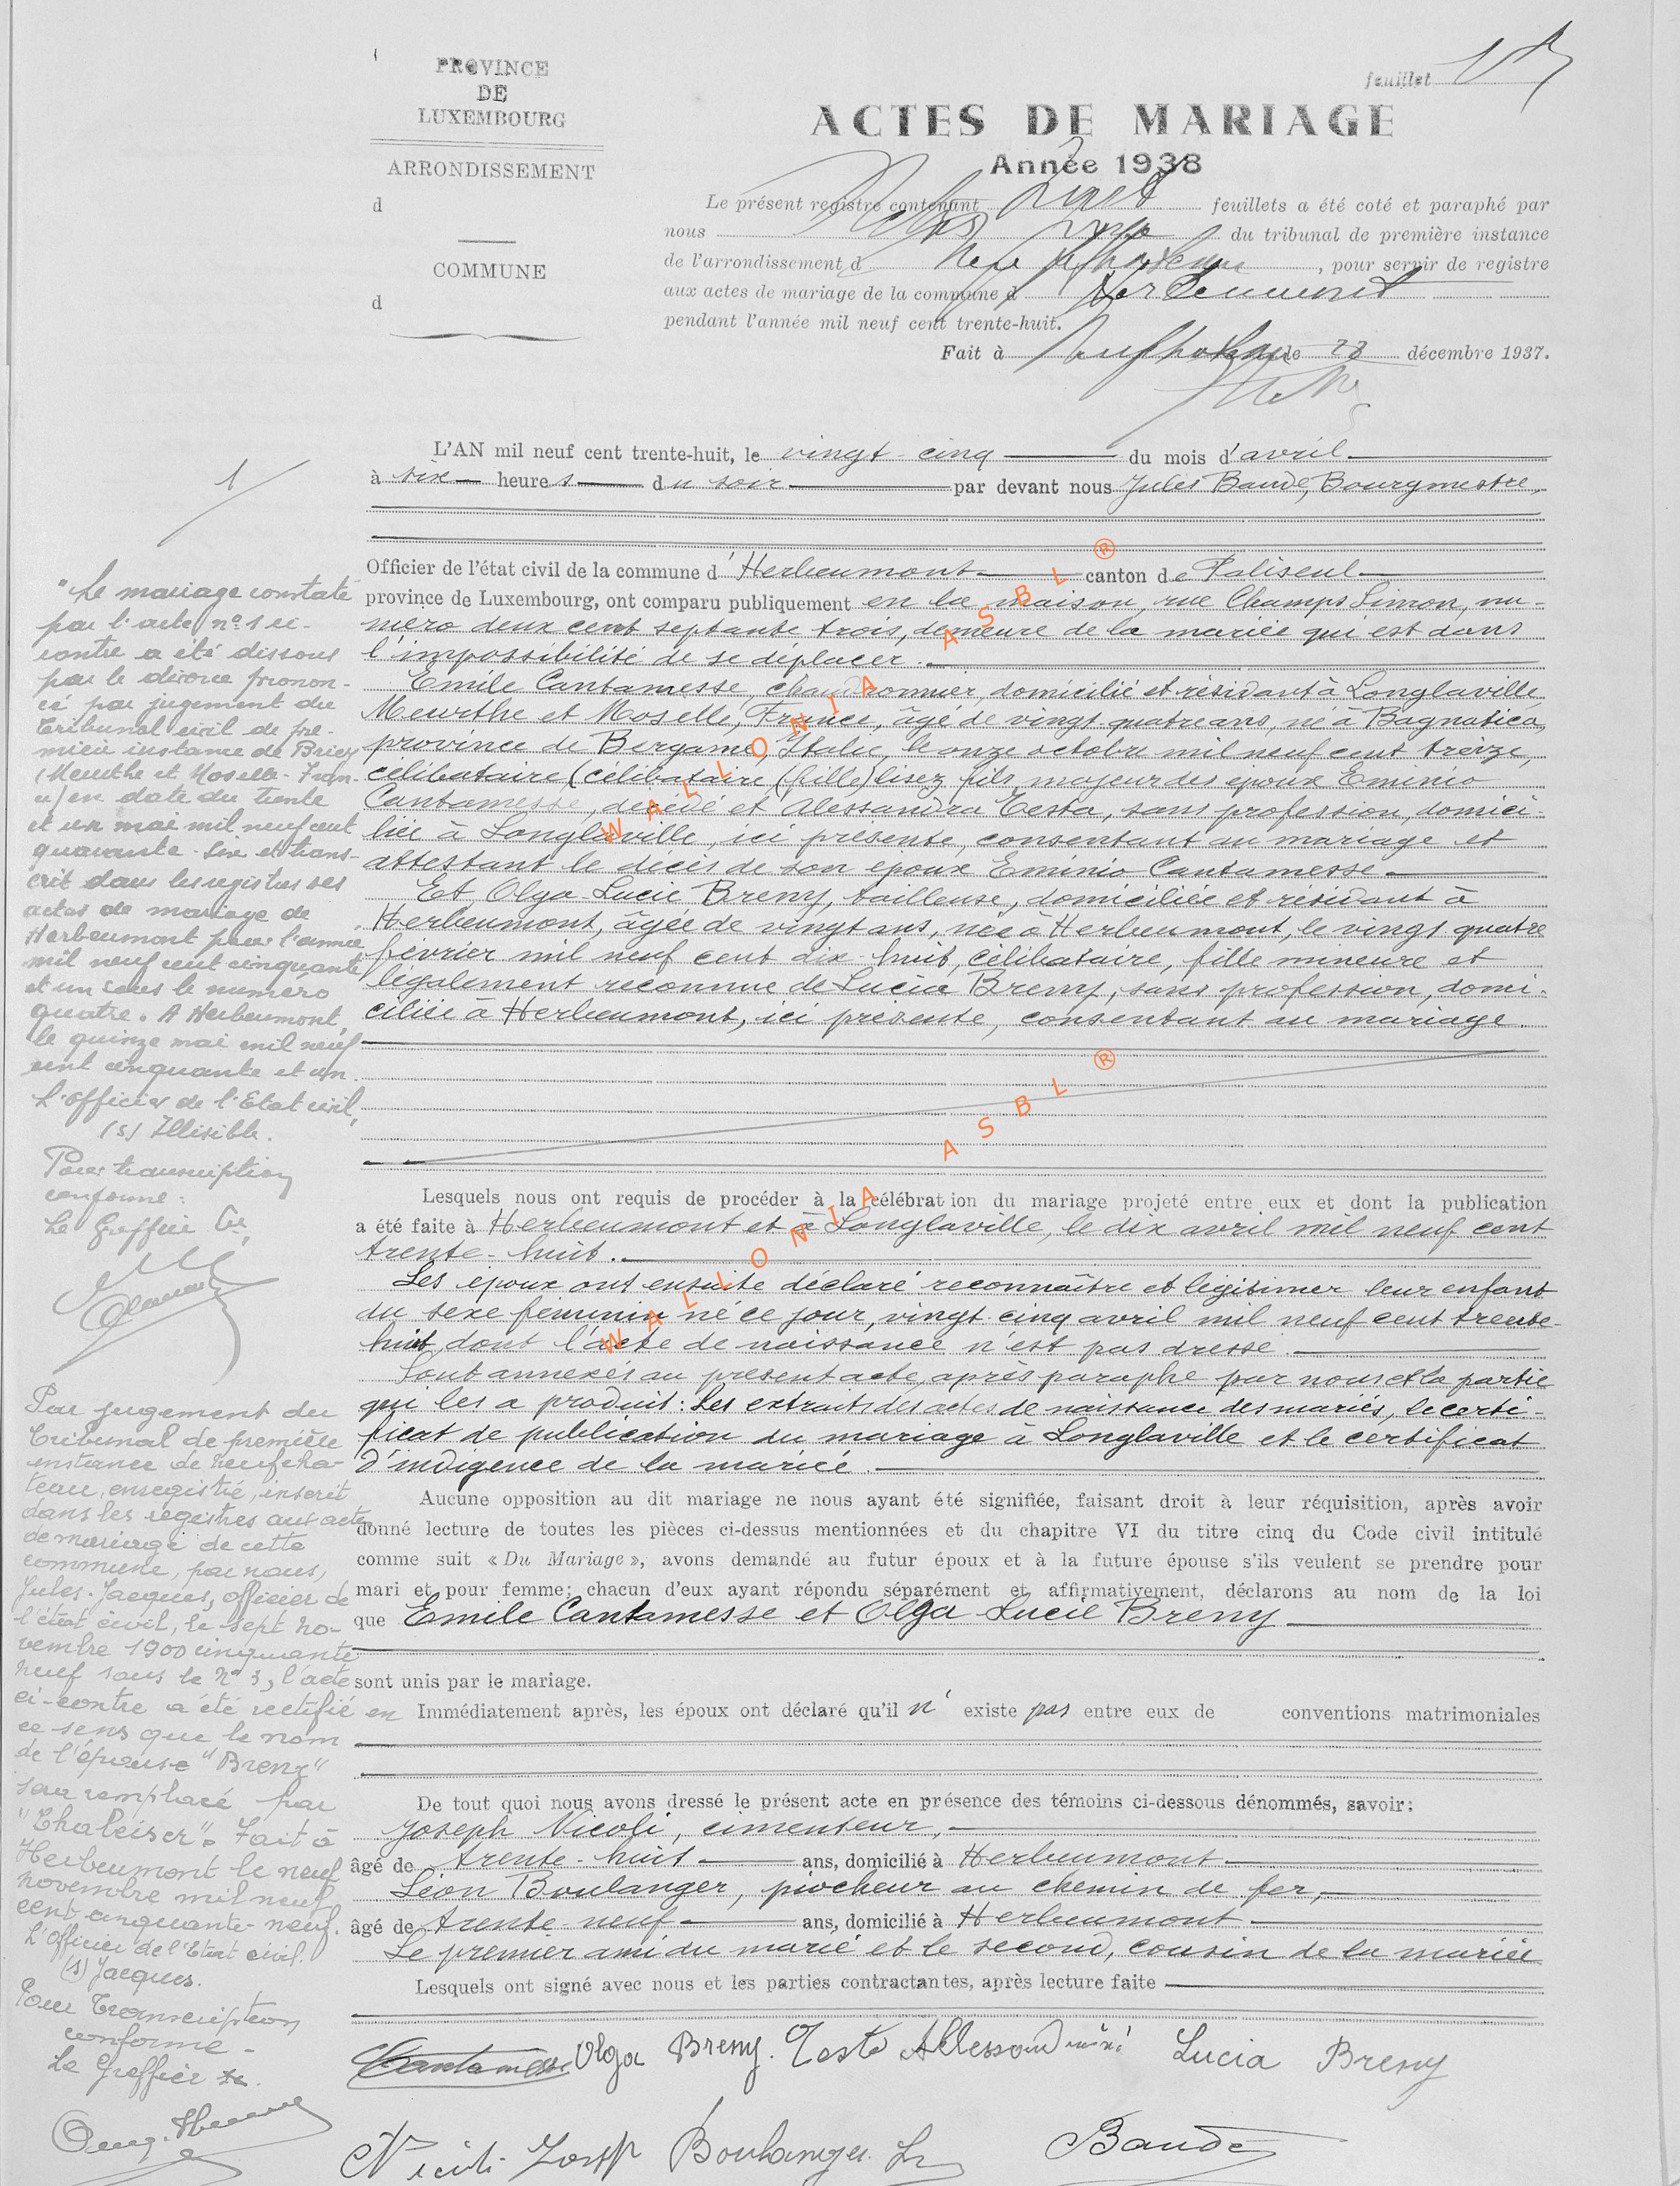 PROVINCE
DE
LUXEMBOURG
ARRONDISSEMENT
d
COMMUNE
d
feuillet
ACTES DE MARIAGE
Année 1938
Le présent registre contenant feuillets a été coté et paraphé par
nous du tribunal de première instance
de l'arrondissement d Neufchateau, pour servir de registre
aux actes de mariage de la commune d Herbeumont
pendant l'année mil neuf cent trente-huit.
Fait à Neufchateau le 28 décembre 1937.
1
L'AN mil neuf cent trente-huit, le vingt-cinq du mois d'avril
à six heures du soir par devant nous Jules Baudé, Bourgmestre,
Officier de l'état civil de la commune d'Herbeumont canton de Paliseul
province de Luxembourg, ont comparu publiquement en la maison, rue Champs Simon, nu-
mero deux cent septante trois, demeure de la mariée qui est dans
l'impossibilité de se déplacer.
Emile Cantamesse, chaudronnier, domicilié et résidant à Longlaville
Meurthe et Moselle, France, âgé de vingt quatre ans, né à Bagnatica,
province de Bergame, Italie, le onze octobre mil neuf cent treize,
célibataire (célibataire (fille) lisez fils majeur des epoux Eminio
Cantamesse, décédé et Alessandra Testa, sans profession, domici-
liée à Longlaville, ici présente, consentant au mariage et
attestant le décès de son époux Eminio Cantamesse
Et Olga-Lucie Breny, tailleuse, domiciliée et résidant à
Herbeumont, âgée de vingt ans, née à Herbeumont, le vingt quatre
février mil neuf cent dix-huit, célibataire, fille mineure et
légalement reconnue de Lucia Breny, sans profession, domi-
ciliée à Herbeumont, ici présente, consentant au mariage.
Lesquels nous ont requis de procéder à la célébration du mariage projeté entre eux et dont la publication
a été faite à Herbeumont et à Longlaville, le dix avril mil neuf cent
trente-huit.
Les époux ont ensuite déclaré reconnaître et legitimer leur enfant
du sexe féminin né ce jour, vingt-cinq avril mil neuf cent trente-
huit dont l'acte de naissance n'est pas dressé.
Sont annexés au présent acte, après paraphe par nous et la partie
qui les a produit: Les extraits des actes de naissance des mariés, le certi-
ficat de publication du mariage à Longlaville et le certificat
d'indigence de la mariée.
Aucune opposition au dit mariage ne nous ayant été signifiée, faisant droit à leur réquisition, après avoir
donné lecture de toutes les pièces ci-dessus mentionnées et du chapitre VI du titre cinq du Code civil intitulé
comme suit « Du Mariage », avons demandé au futur époux et à la future épouse s'ils veulent se prendre pour
mari et pour femme; chacun d'eux ayant répondu séparément et affirmativement, déclarons au nom de la loi
que Emile Cantamesse et Olga Lucie Breny
sont unis par le mariage.
Immédiatement après, les époux ont déclaré qu'il n' existe pas entre eux de conventions matrimoniales
De tout quoi nous avons dressé le présent acte en présence des témoins ci-dessous dénommés, savoir:
Joseph Nicoli, cimenteur,
âgé de trente-huit ans, domicilié à Herbeumont
Léon Boulanger, piocheur au chemin de fer,
âgé de trente-neuf ans, domicilié à Herbeumont
Le premier ami du marié et le second, cousin de la mariée
Lesquels ont signé avec nous et les parties contractantes, après lecture faite
Cantamesse Olga Breny. Testa Lucia Breny
Nicoli Boulanger Baudé
"Le mariage constaté
par l'acte n° 1 ci-
contre a été dissous
par le divorce pronon-
cé par jugement du
tribunal civil de pre-
mière instance de Briey
(Meurthe et Moselle - Fran-
ce) en date du trente
et un mai mil neuf cent
quarante-six et trans-
crit dans les registres des
actes de mariage de
Herbeumont pour l'année
mil neuf cent cinquante
et un sous le numero
quatre. A Herbeumont,
le quinze mai mil neuf
cent cinquante et un.
L'officier de l'Etat civil,
(s) Illisible.
Pour transcription
conforme:
Le Greffier
Par jugement du
tribunal de première
instance de Neufchâ-
teau, enregistré, inscrit
dans les registres aux actes
de mariage de cette
commune, par nous,
Jules Jacques, officier de
l'état civil, le sept no-
vembre 1900 cinquante
neuf sous le n° 3, l'acte
ci-contre a été rectifié en
ce sens que le nom
de l'épouse "Breny"
sera remplacé par
"Thaleiser". Fait à
Herbeumont le neuf
novembre mil neuf
cent cinquante-neuf.
L'Officier de l'Etat civil.
(s) Jacques.
Pour Transcription
conforme -
Le Greffier
WALLONIA ASBL ®
WALLONIA ASBL ®